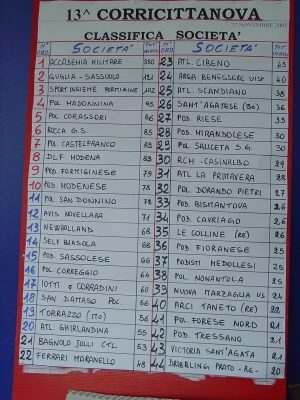 13^ CORRICITTANOVA
27 NOVEMBRE 2005
CLASSIFICA SOCIETA'
N° ORD. SOCIETA' TOT.
1 ACCADEMIA MILITARE 250
2 GUGLIA - SASSUOLO 121
3 SPORTINSIEME FORMIGINE 102
4 POL. MADONNINA 95
5 POL. CORASSORI 86
6 ROCCA G.S. 85
7 POL CASTELFRANCO 85
8 DLF MODENA 83
9 POD. FORMIGINESE 79
10 POD MODENESE 78
11 POL SAN DONNINO 72
12 AVIS NOVELLARA 71
13 NEWHOLLAND 68
14 SELF BIASOLA 68
15 POD. SASSOLESE 66
16 POL CORREGGIO 64
17 IOTTI E CORRADINI 60
18 SAN DAMASO POL. 56
19 TORRAZZO (MO) 56
20 ATL GHIRLANDINA 55
21 BAGNOLO JOLLI CTL 53
22 FERRARI MARANELLO 48
N° ORD. SOCIETA' TOT.
23 ATL. CIBENO 43
24 AREA BENESSERE VISP 40
25 ATL. SCANDIANO 38
26 SANT'AGATESE (BO) 36
27 POD. RIESE 35
28 POD. MIRANDOLESE 30
29 POL. SALICETA S.G. 30
30 RCH - CASINALBO 29
31 ATL LA PRIMAVERA 28
32 POL DORANDO PIETRI 27
33 POD. BISMANTOVA 26
34 POD. CAVRIAGO 26
35 LE COLLINE (RE) 26
36 POD. FIORANESE 25
37 PODISTI MEDOLLESI 25
38 POL. NONANTOLA 25
39 NUOVA MARZAGLIA US 24
40 ARCI TANETO (RE) 22
41 POL FORESE NORD 21
42 POD. TRESSANO 21
43 VICTORIA SANT'AGATA 21
44 DRIBBLING PRATO - RE - 20